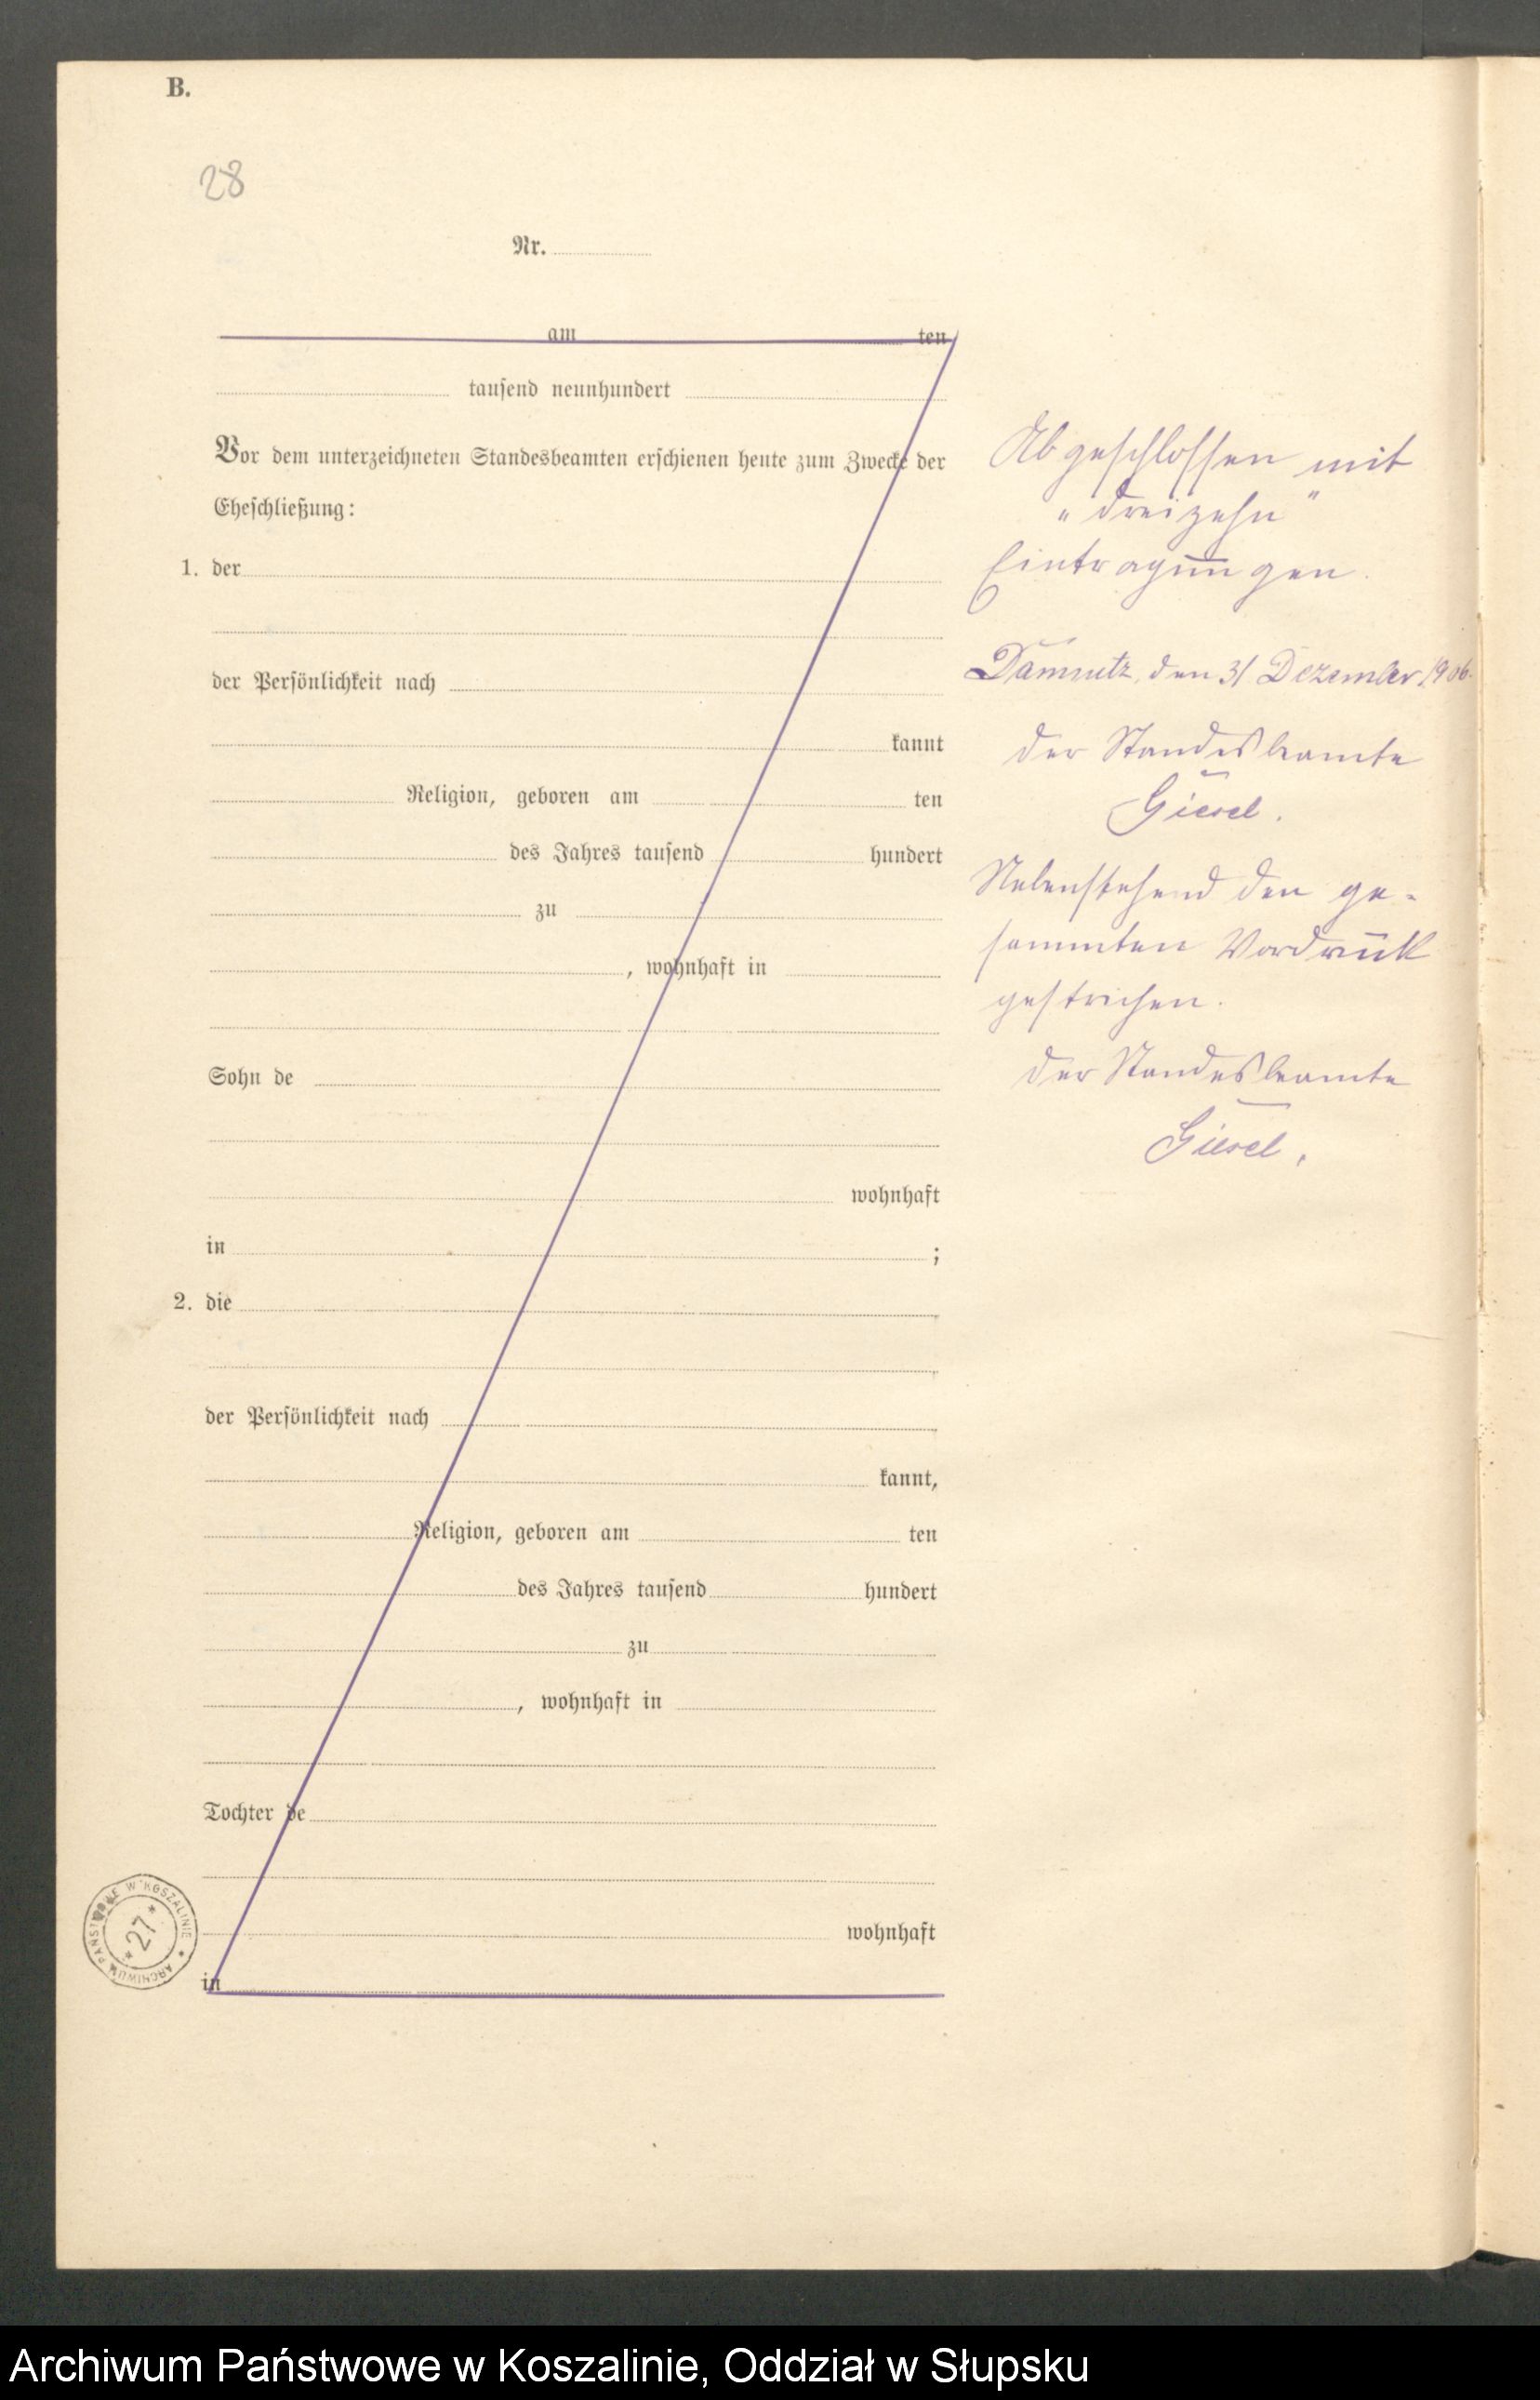 B.
28
Nr.
am ten
tausend neunhundert
Vor dem unterzeichneten Standesbeamten erschienen heute zum Zwecke der
Eheschließung:
1. der
der Persönlichkeit nach
kannt
Religion, geboren am ten
des Jahres tausend hundert
zu
, wohnhaft in
Sohn de
wohnhaft
in ;
2. die
der Persönlichkeit nach
kannt,
Religion, geboren am ten
des Jahres tausend hundert
zu
, wohnhaft in
Tochter de
wohnhaft
in
Abgeschlossen mit
„dreizehn"
Eintragungen.
Damnitz, den 31 Dezember 1906.
Der Standesbeamte
Giesel.
Nebenstehend den ge-
sammten Vordruck
gestrichen.
Der Standesbeamte
Giesel.
ARCHIWUM PAŃSTWOWE W KOSZALINIE
* 27 *
Archiwum Państwowe w Koszalinie, Oddział w Słupsku